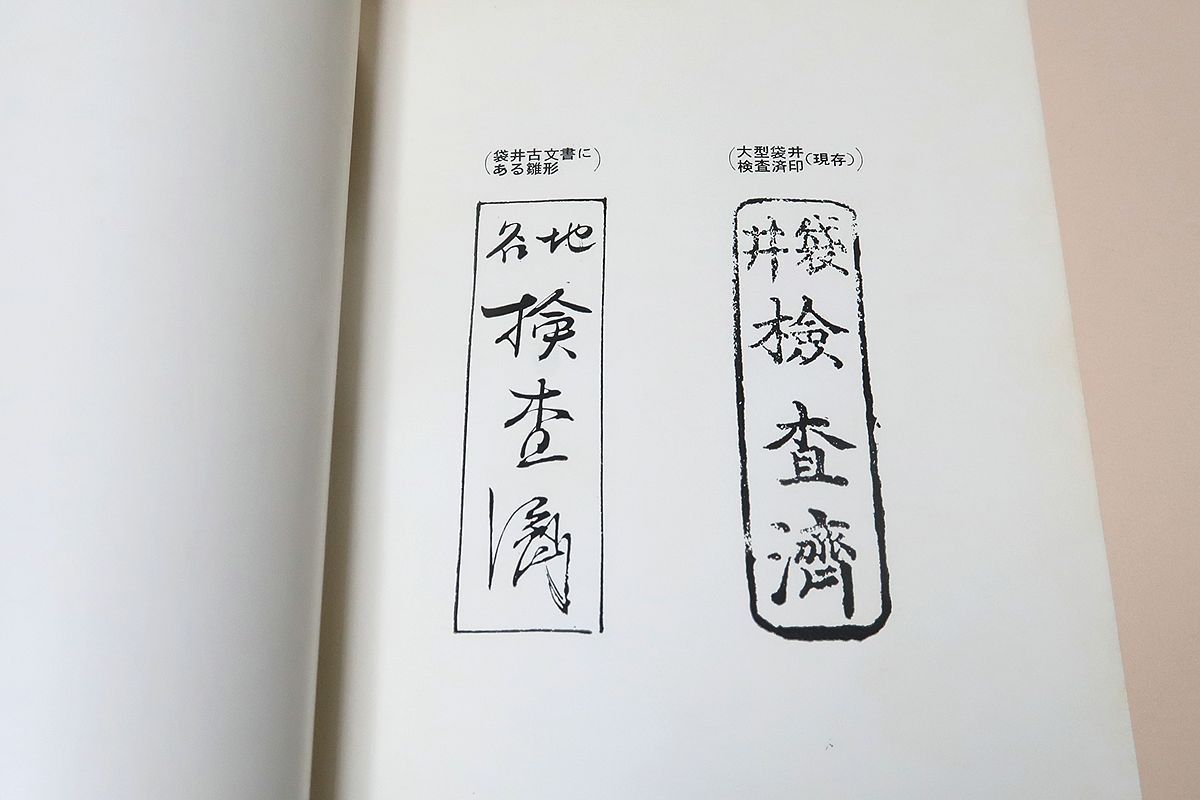 (大型袋井
検査済印(現存))
袋井
檢
査
濟
(袋井古文書に
ある雛形)
地名
検
査
濟